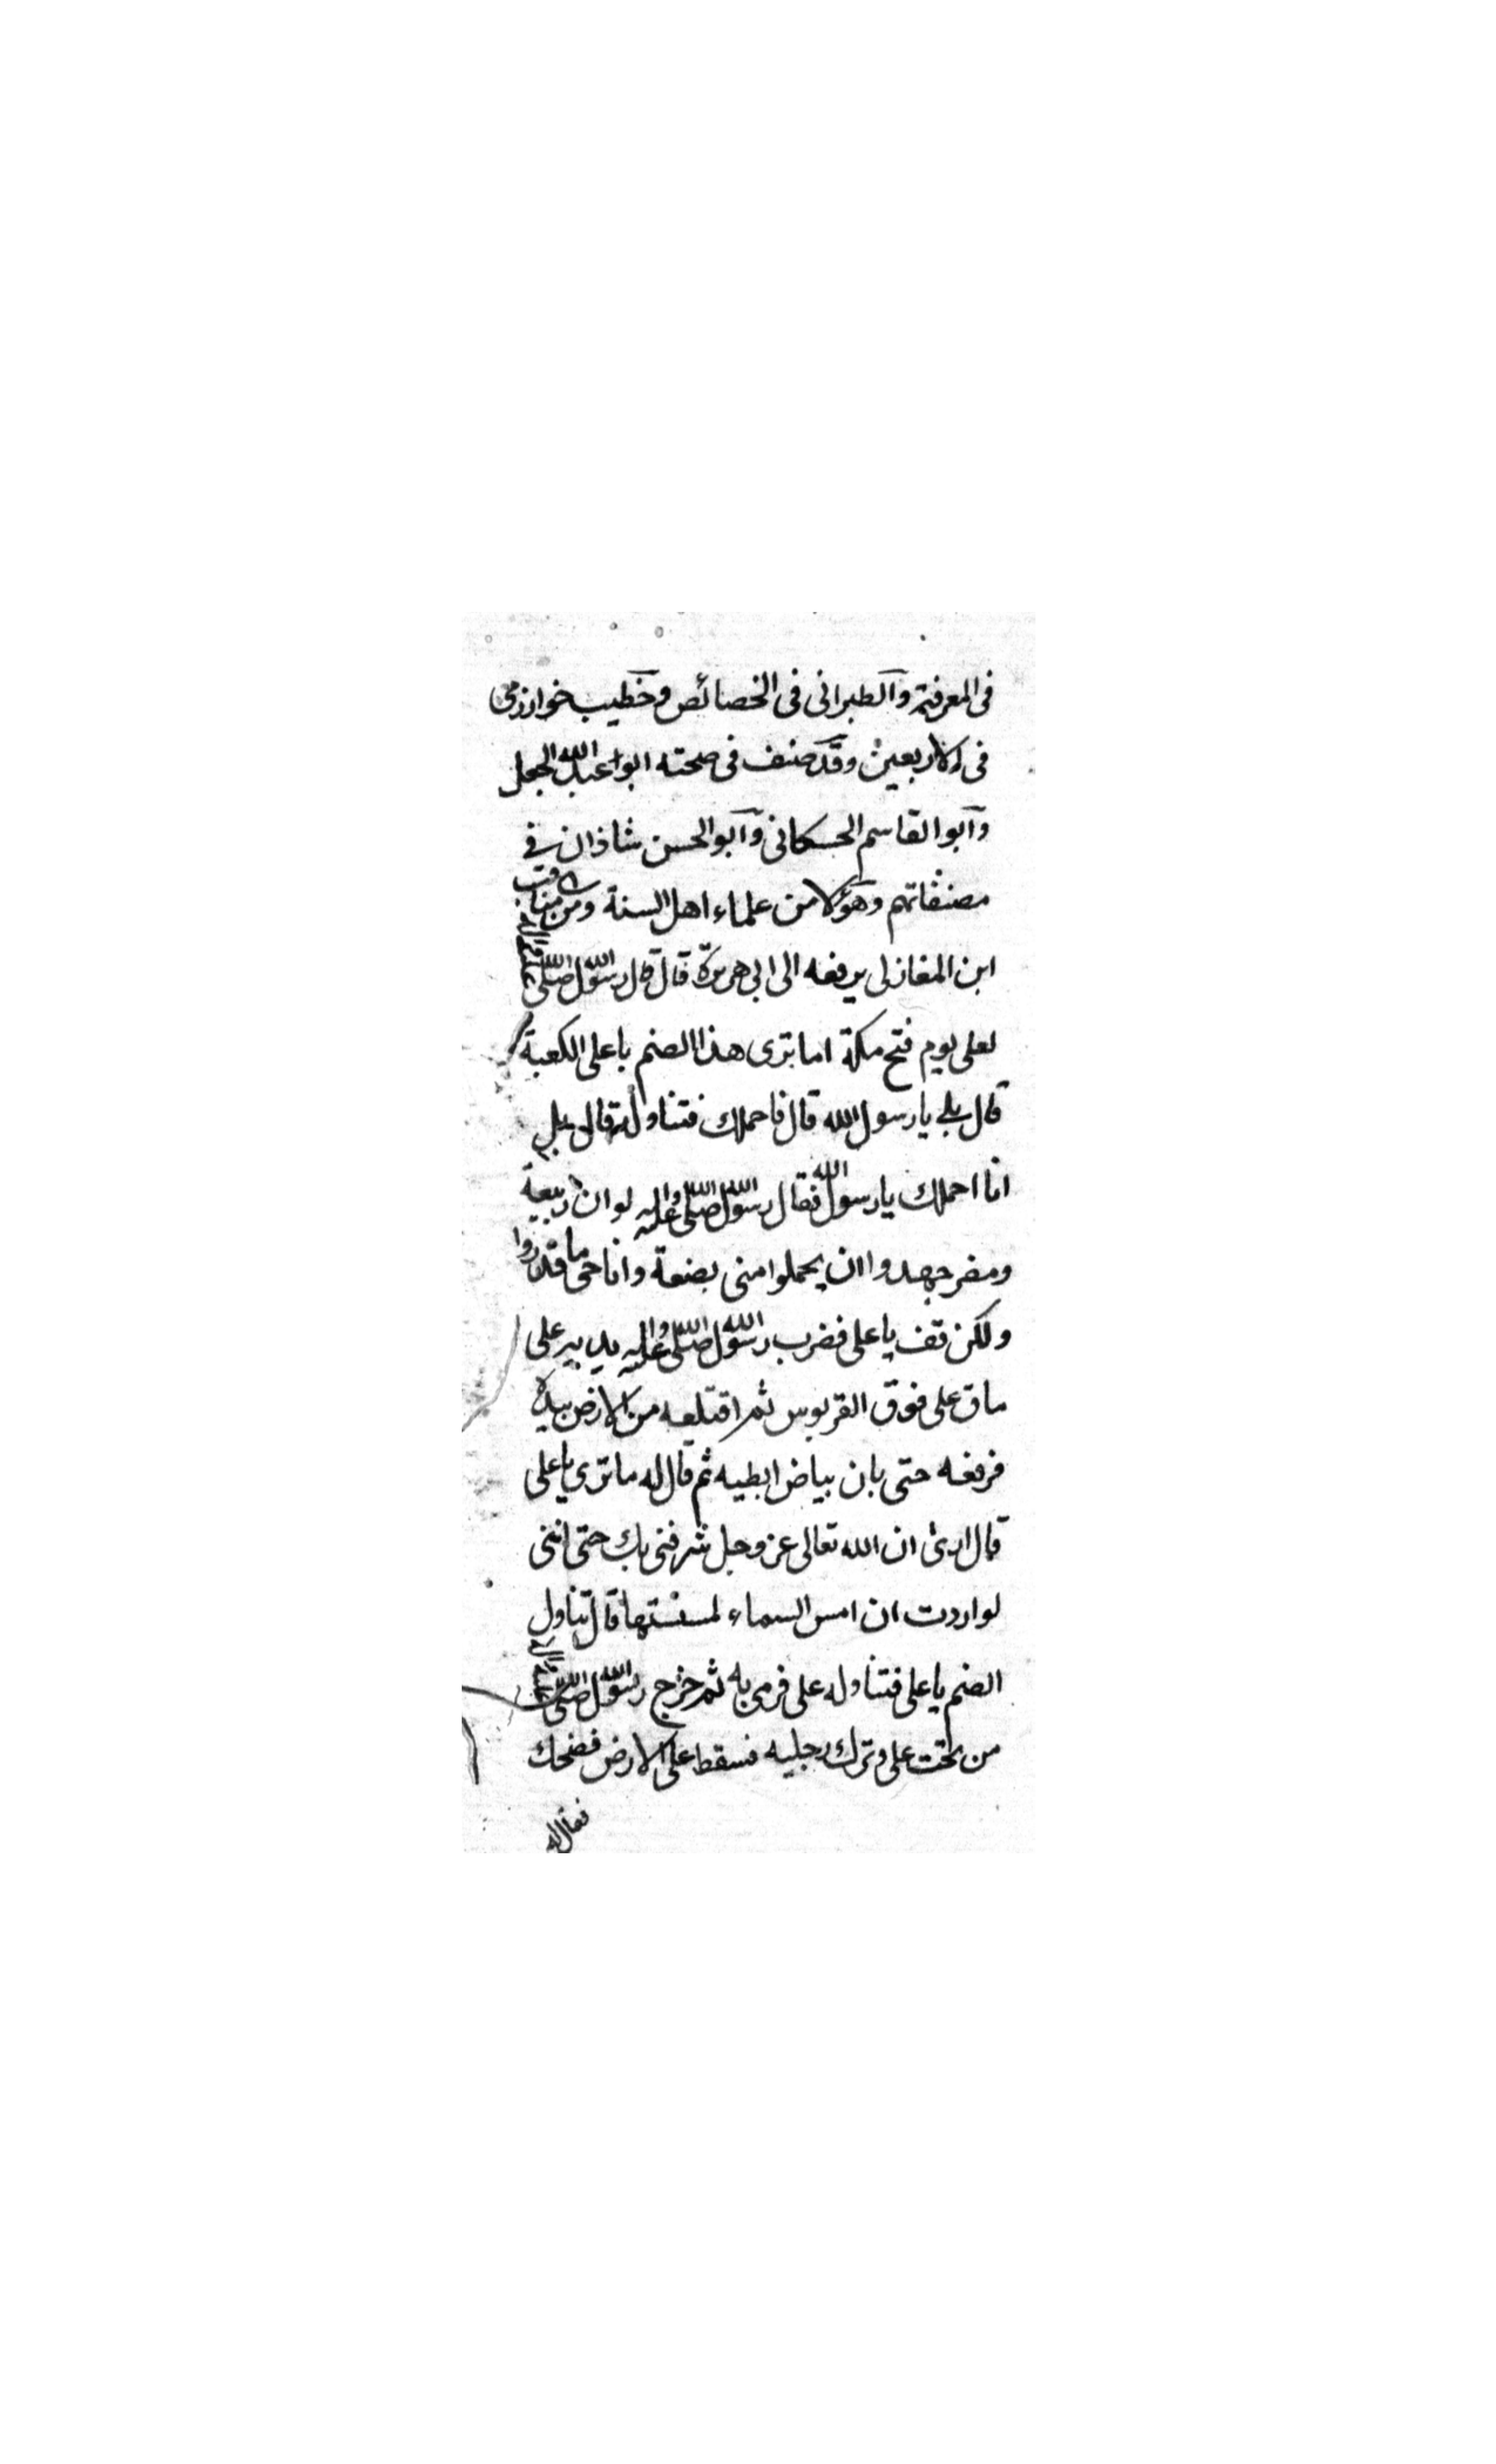 فى المعرفة والطبرانى فى الخصائص وخطيب خوارزمى
فى الاربعين وقد صنف فى صحته ابوا عبد الله الجعل
وابوا القاسم الحسكانى وابوا الحسن شاذان فى
مصنفاتهم وهؤلا من علماء اهل السنة ومن مناقب
ابن المغازلى يرفعه الى ابى هريرة قال قال رسول الله صلى الله عليه واله
لعلى يوم فتح مكة اما ترى هذا الصنم باعلى الكعبة
قال بلى يا رسول الله قال فاحملك فتناوله قال بل
انا احملك يا رسول الله فقال رسول الله صلى الله عليه واله لو ان ربيعة
ومضر جهدوا ان يحملوا منى بضعة وانا حى ما قدروا
ولكن قف يا على فضرب رسول الله صلى الله عليه واله يديه على
ساق على فوق القربوس ثم اقتلعه من الارض بيده
فرفعه حتى بان بياض ابطيه ثم قال له ما ترى يا على
قال ارى ان الله تعالى عز وجل شرفنى بك حتى اننى
لو اردت ان امس السماء لمستها قال تناول
الصنم يا على فتناوله على فرمى به ثم خرج رسول الله صلى الله عليه واله
من تحت على وترك رجليه فسقط على الارض فضحك
فقال له